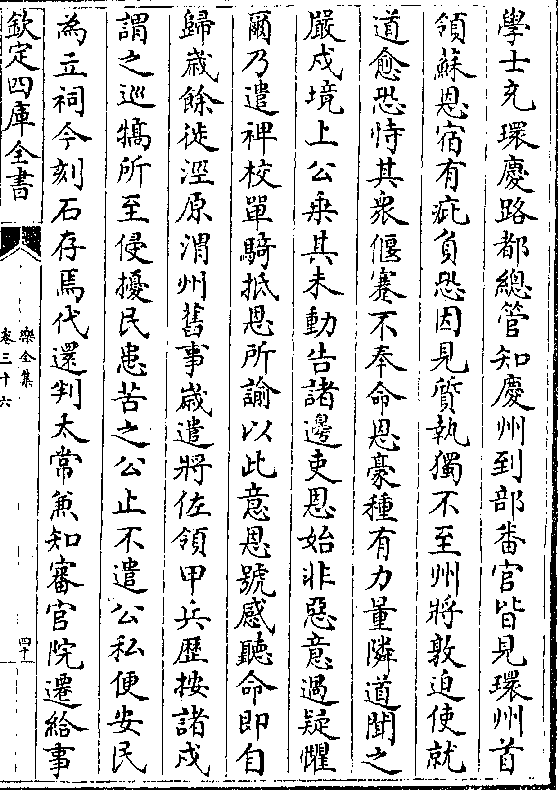 學士充環慶路都總管知慶州到部畨官皆見環州首
領蘇恩宿有疵負恐因見質執獨不至州將敦迫使就
道愈恐恃其衆偃蹇不奉命恩豪種有力量隣道聞之
嚴戍境上公乗其未動告諸邊吏恩始非惡意過疑懼
爾乃遣裨校單騎抵恩所諭以此意恩號感聽命即自
歸歲餘徙涇原渭州舊事歲遣將佐領甲兵歴按諸戍
謂之巡犒所至侵擾民患苦之公止不遣公私便安民
為立祠今刻石存焉代還判太常兼知審官院遷給事
欽定四庫全書
樂全集
卷三十六
四十